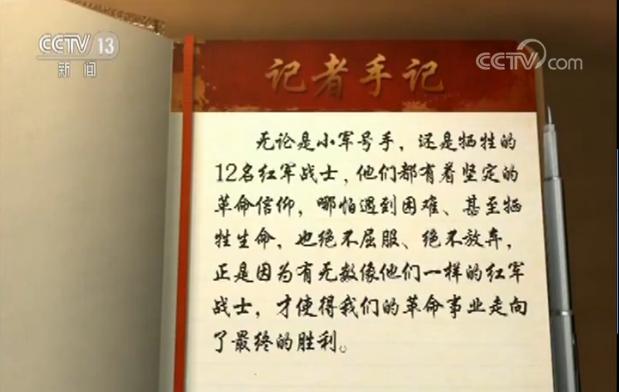 CCTV 13
新闻
CCTV com
记者手记
无论是小军号手，还是牺牲的
12名红军战士，他们都有着坚定的
革命信仰，哪怕遇到困难、甚至牺
牲生命，也绝不屈服、绝不放弃，
正是因为有无数像他们一样的红军
战士，才使得我们的革命事业走向
了最终的胜利。